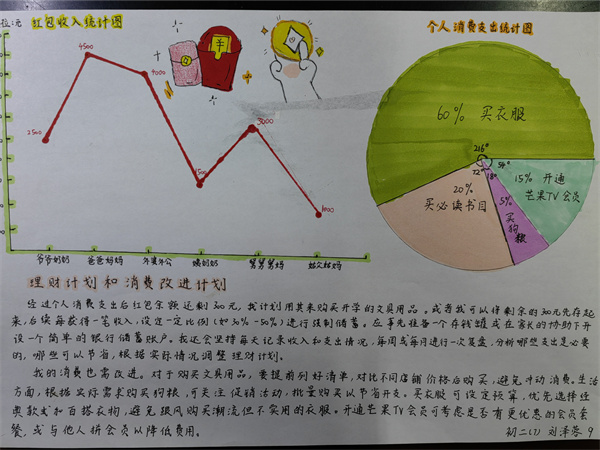 位:元 红包收入统计图
个人消费支出统计图
4500
4000
3000
2500
1500
1000
爷爷奶奶 爸爸妈妈 外婆外公 姨奶奶 舅舅舅妈 姑父姑妈
60% 买衣服
216°
54°
72°
18°
15% 开通
芒果TV会员
20%
买必读书目
5% 买狗粮
理财计划和消费改进计划
经过个人消费支出后红包余额还剩300元,我计划用其来购买开学的文具用品。或者我可以将剩余的300元先存起
来,后续每获得一笔收入,设定一定比例(如30%-50%)进行强制储蓄。在事先准备一个存钱罐或在家长的协助下开
设一个简单的银行储蓄账户。我还会坚持每天记录收入和支出情况,每周或每月进行一次复盘,分析哪些支出是必要
的,哪些可以节省,根据实际情况调整理财计划。
我的消费也需改进。对于购买文具用品,要提前列好清单,对比不同店铺价格后购买,避免冲动消费。生活
方面,根据实际需求购买狗粮,可关注促销活动,批量购买以节省开支。买衣服可设定预算,优先选择经
典款式和百搭衣物,避免跟风购买潮流但不实用的衣服。开通芒果TV会员可考虑是否有更优惠的会员套
餐,或与他人拼会员以降低费用。
初二(7) 刘泽蓉 9